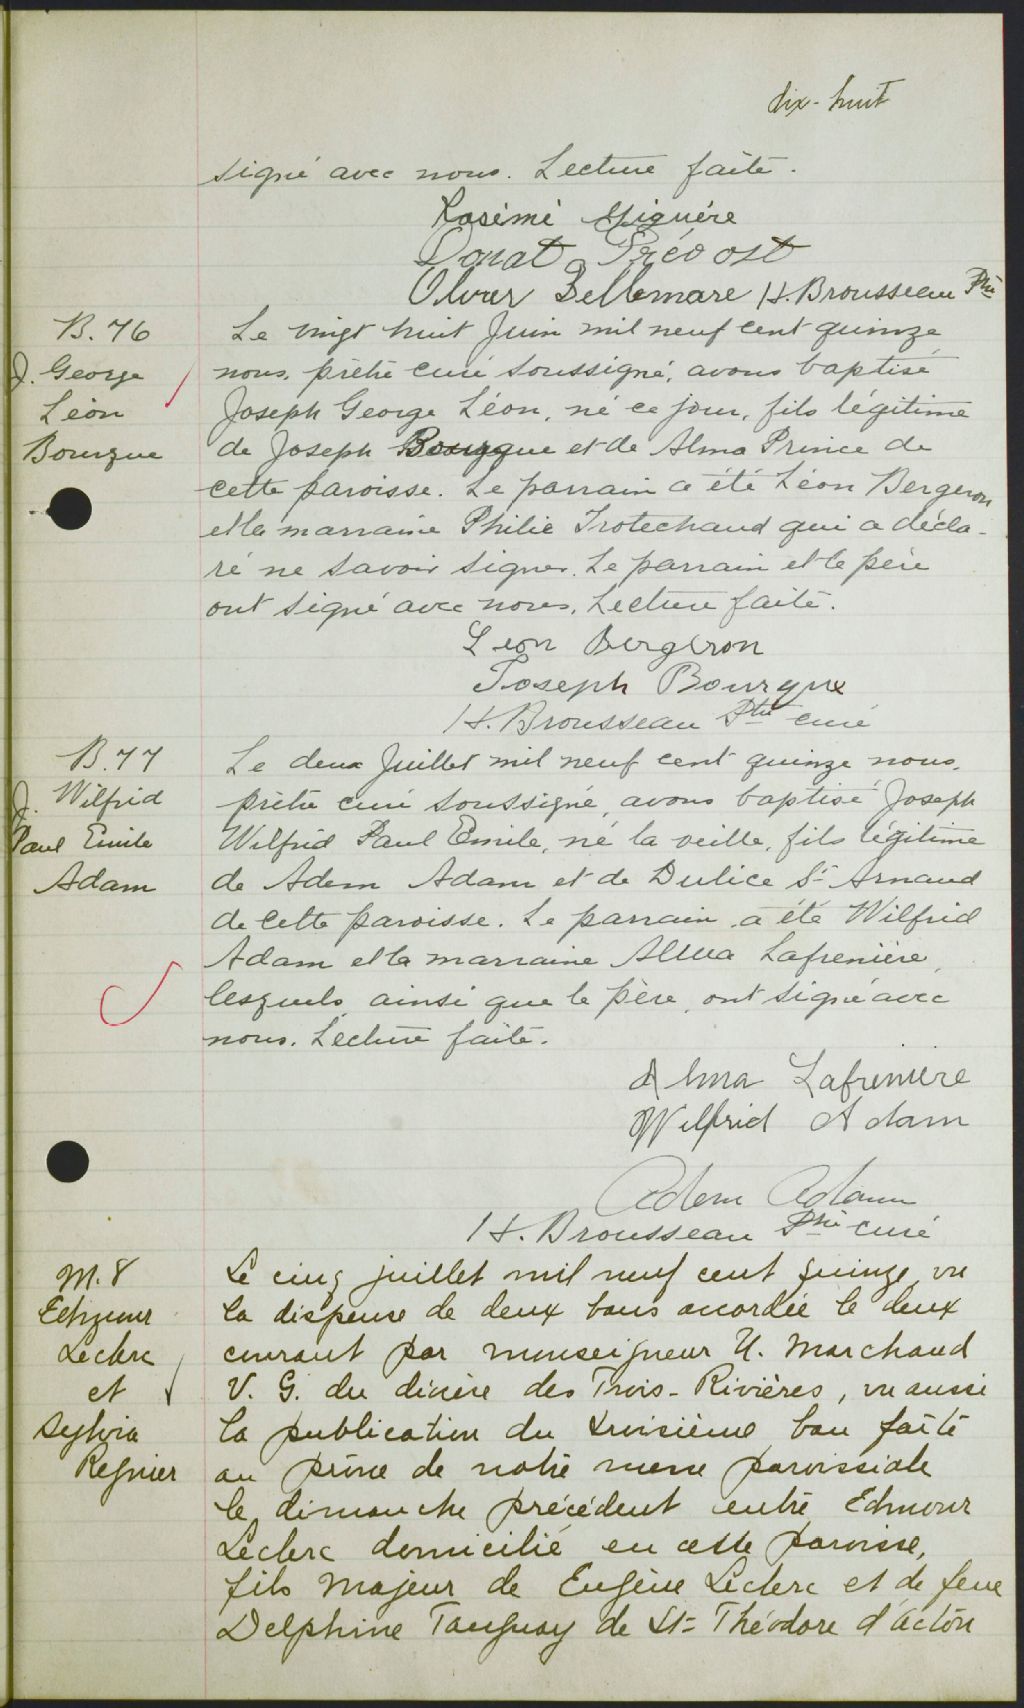 dix-huit
signé avec nous. Lecture faite.
Rosimé Miguére
Donat Prévost
Oliver Bellemare H. Brousseau Ptre
B. 76
J. George
Léon
Bourque
Le vingt huit Juin mil neuf cent quinze
nous, prêtre curé soussigné, avons baptisé
Joseph George Léon, né ce jour, fils légitime
de Joseph Bourque et de Alma Prince de
cette paroisse. Le parrain a été Léon Bergeron
et la marraine Philie Trotechaud qui a décla-
ré ne savoir signer. Le parrain et le père
ont signé avec nous. Lecture faite.
Leon Bergeron
Joseph Bourque
H. Brousseau Ptre curé
B. 77
J. Wilfrid
Paul Emile
Adam
Le deux Juillet mil neuf cent quinze nous,
prêtre curé soussigné, avons baptisé Joseph
Wilfrid Paul Emile, né la veille, fils légitime
de Adem Adam et de Dulice St Arnaud
de cette paroisse. Le parrain a été Wilfrid
Adam et la marraine Alma Lafrenière,
lesquels, ainsi que le père, ont signé avec
nous. Lecture faite.
Alma Lafreniere
Wilfrid Adam
Adem Adam
H. Brousseau Ptre curé
M. 8
Edmour
Leclerc
et
Sylvia
Regnier
Le cinq juillet mil neuf cent quinze, vu
la dispense de deux bans accordée le deux
courant par monseigneur U. Marchand
V. G. du diocèse des Trois-Rivières, vu aussi
la publication du troisième ban faite
au prône de notre messe paroissiale
le dimanche précédent entre Edmour
Leclerc domicilié en cette paroisse,
fils majeur de Eugène Leclerc et de feue
Delphine Tanguay de St-Théodore d'Acton